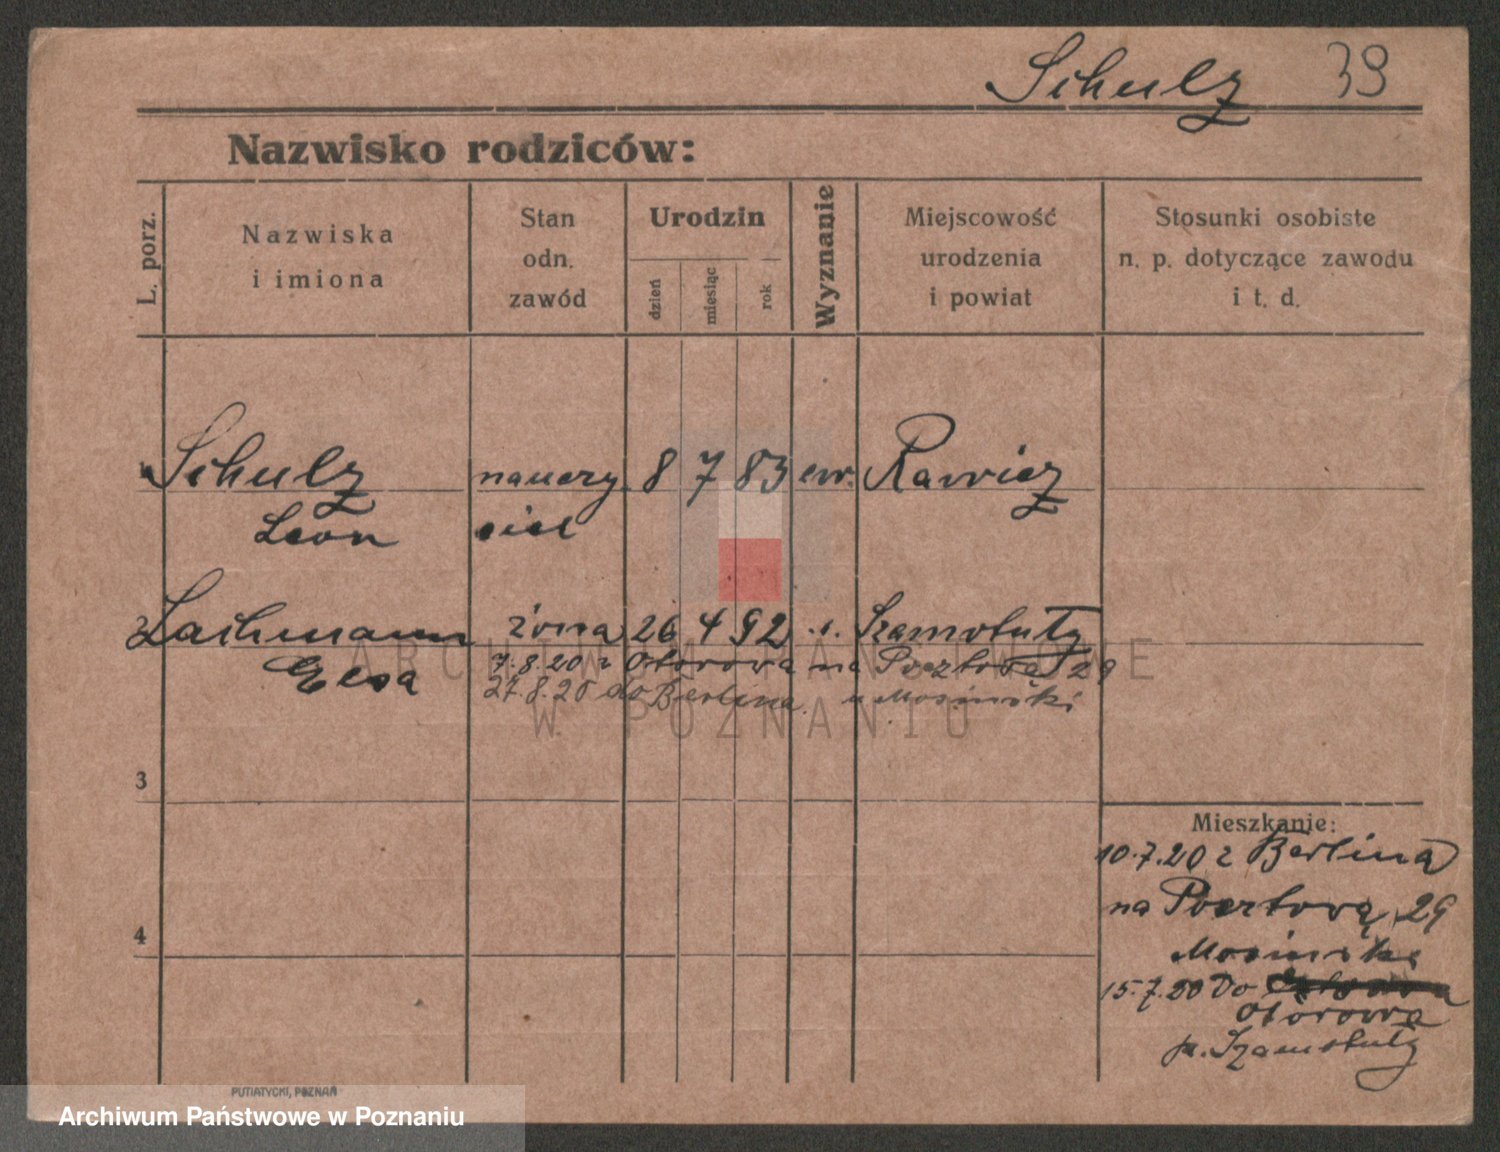 Schulz 39
Nazwisko rodziców:
L. porz.
Nazwiska
i imiona
Stan
odn.
zawód
Urodzin
dzień
miesiąc
rok
Wyznanie
Miejscowość
urodzenia
i powiat
Stosunki osobiste
n. p. dotyczące zawodu
i t. d.
Schulz nauczy 8 7 83 ew. Rawicz
Leon ciel
2 Lachmann żona 26 4 92 Szamotuły
Elsa 7.8.20 z Otorowa na Pocztową 29
27.8.20 do Berlina. u Mosinski
ARCHIWUM PAŃSTWOWE
W POZNANIU
3
4
Mieszkanie:
10.7.20 z Berlina
na Pocztową 29
Mosinska
15.7.20 Do
Otorowa
p. Szamotuły
PUTIATYCKI, POZNAŃ
Archiwum Państwowe w Poznaniu